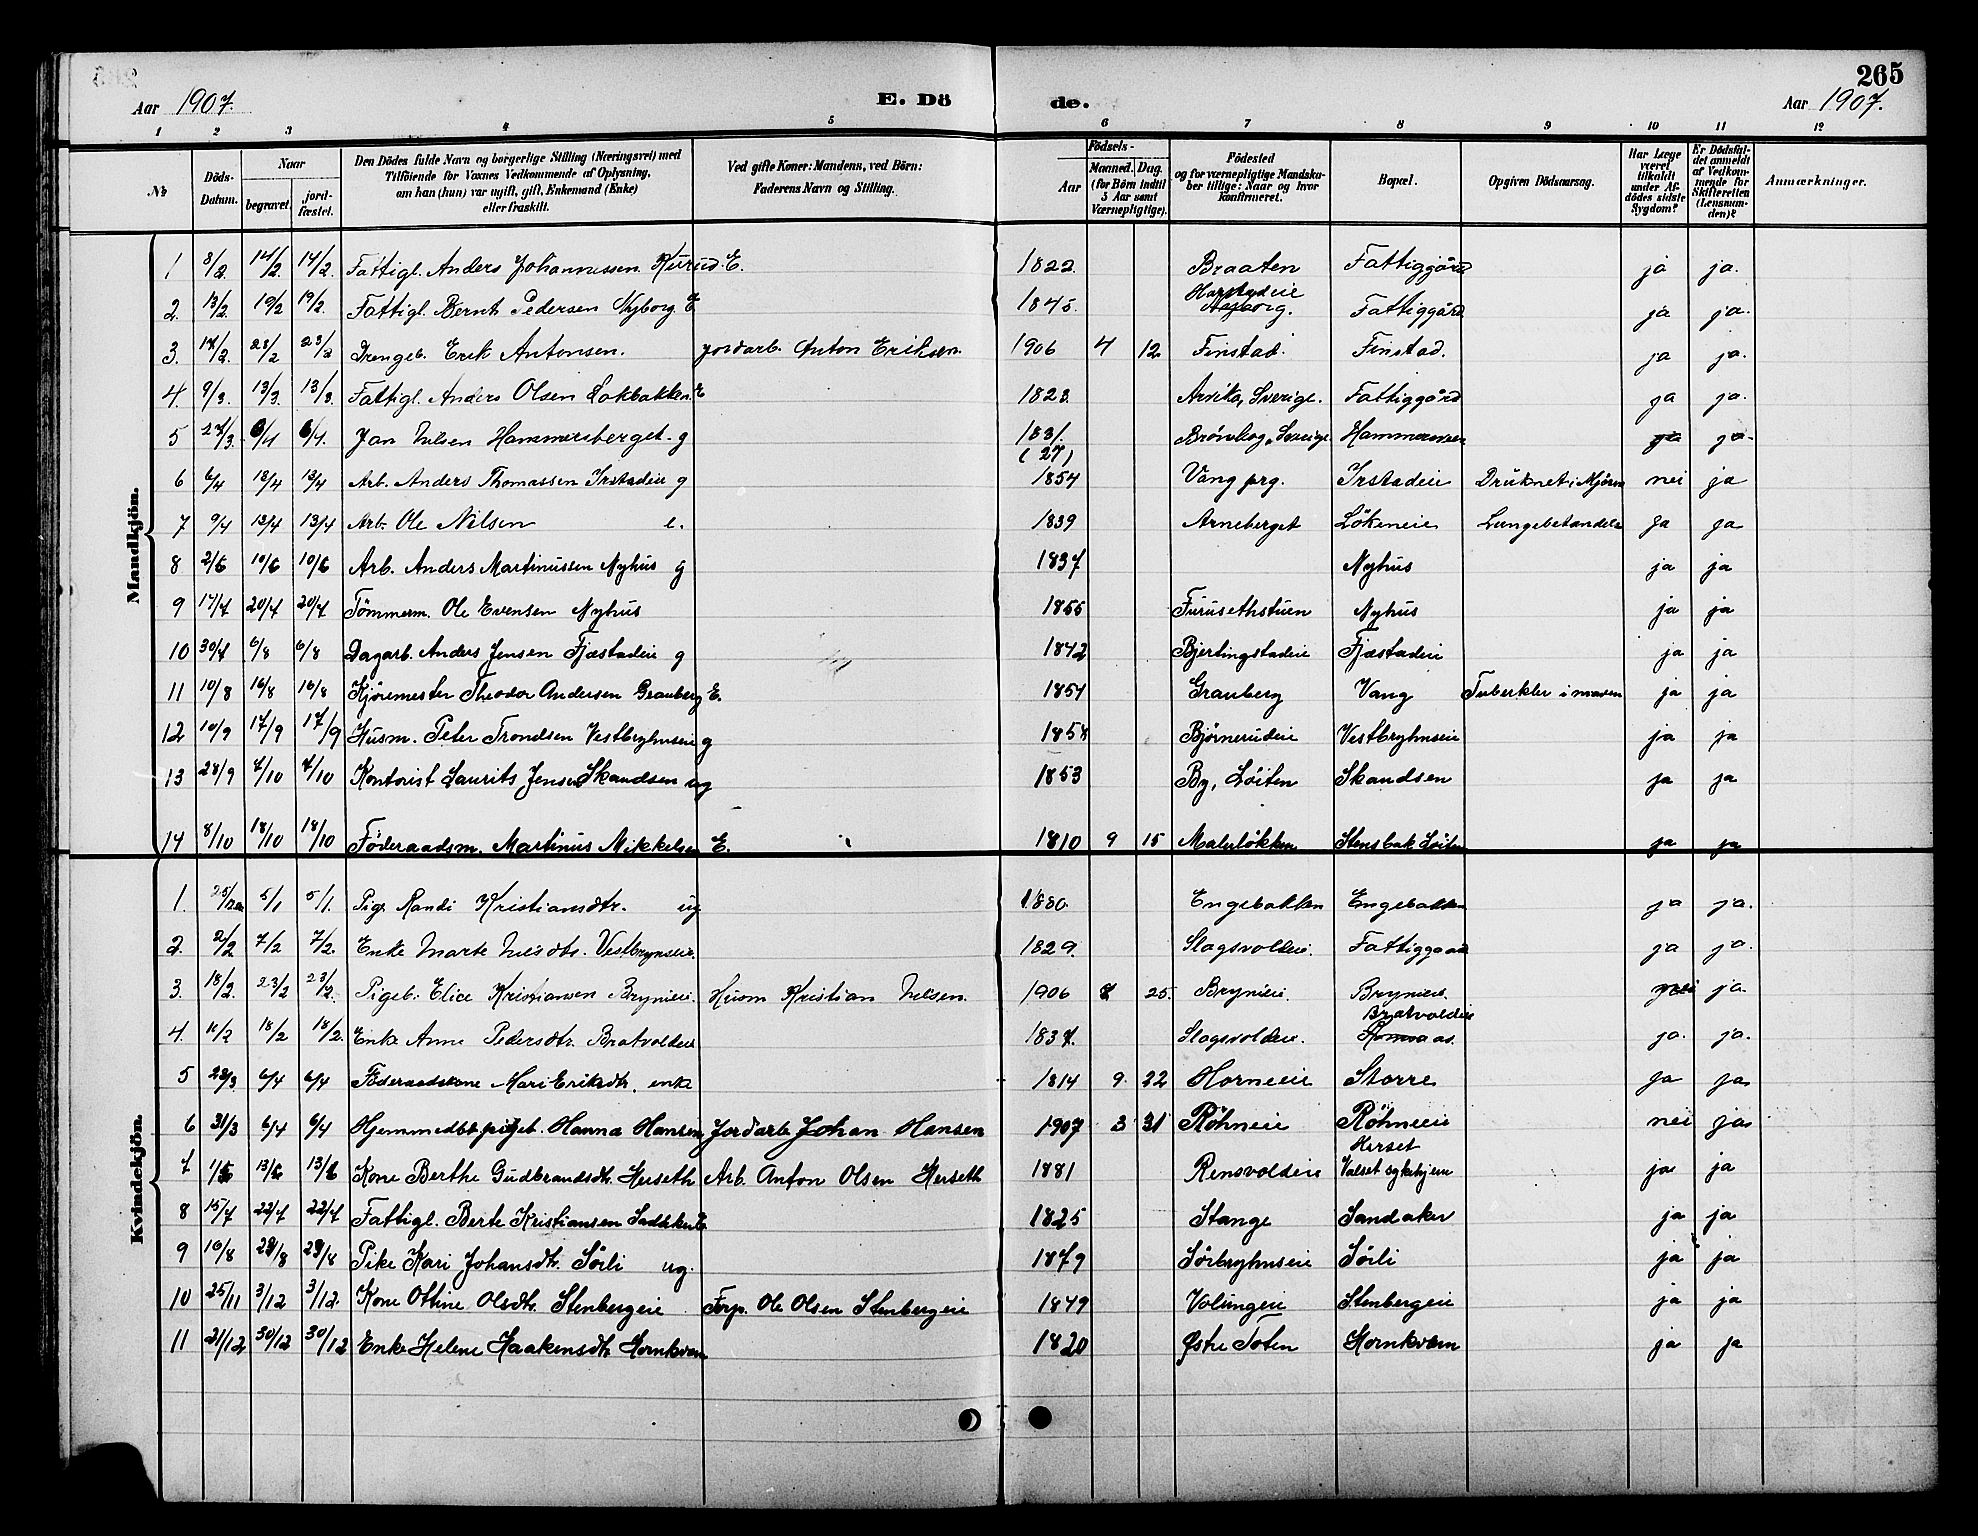 265
Aar 1907.
E. Döde.
Aar 1907.
1 2 3 4 5 6 7 8 9 10 11 12
No
Döds-Datum.
Naar
begravet.
jordfæstet.
Den Dödes fulde Navn og borgerlige Stilling (Næringsvei) med
Tilföiende for Voxnes Vedkommende af Oplysning,
om han (hun) var ugift, gift, Enkemand (Enke)
eller fraskilt.
Ved gifte Koner: Mandens, ved Börn:
Faderens Navn og Stilling.
Födsels-
Aar
Maaned. Dag.
(for Börn indtil
5 Aar samt
Værnepligtige).
Födested
og for værnepligtige Mandska-
ber tillige: Naar og hvor
konfirmeret.
Bopæl.
Opgiven Dödsaarsag.
Har Læge
været
tilkaldt
under Af-
dödes sidste
Sygdom?
Er Dödsfal-
det anmeldt
af Vedkom-
mende for
Skifteretten
(Lensman-
den)?
Anmærkninger.
Mandkjön.
1 8/2 14/2 14/2 Fattigl. Anders Johannessen Kurud E. 1822. Braaten Fattiggård ja ja.
2. 13/2 19/2 19/2. Fattigl. Bernt Pedersen Nyborg E 1845. Harstadeie Nyborg. Fattiggård ja ja.
3. 23/2 23/2 Drengeb. Erik Antonsen. Jordarb. Anton Eriksen. 1906 4 12 Finstad. Finstad. ja ja.
4. 9/3. 13/3. 13/3. Fattigl. Anders Olsen Lokbakken E 1823. Arvika, Sverige. Fattiggård ja ja.
5 27/3. 6/4 6/4. Jan Nilsen Hammersberget. g 1831. (27) Sverige ja ja.
6 6/4 13/4 13/4 Arb. Anders Thomassen Irstadeie g 1854 Vang prg. Irstadeie Druknet i Mjøsen nei ja
7 9/4 13/4 13/4 Arb. Ole Nilsen e. 1839 Arneberget Lökeneie Lungebetændelse ja ja
8 2/6 10/6 10/6 Arb. Anders Martinussen Nyhus g 1837 Nyhus ja ja
9 17/7 20/7 20/7 Tömmerm. Ole Evensen Nyhus 1855 Furusethstuen Nyhus ja ja
10 30/7 6/8 6/8 Dagarb. Anders Jensen Fjæstadeie g 1842 Bjertingstadeie Fjæstadeie ja ja
11 10/8 16/8 16/8 Kjöremester Theodor Andersen Granberg E. 1854 Granberg Vang Tuberkler i maven ja ja
12 10/9 17/9 17/9 Husm. Peter Trondsen Vestbryhnseie g 185 Björnerudeie Vestbryhnseie ja ja
13 28/9 4/10 4/10 Kontorist Laurits Jensen Skandsen ug 1853 By, Löiten Skandsen ja ja
14 8/10 18/10 18/10 Föderaadsm. Martinus Mikkelsen E. 1810 9 15 Malerlökken Stensbak Löiten ja ja
Kvindekjön.
1. 5/1 5/1. Pige Randi Kristiansdtr. ug 1880. Engebakken Engebakken ja ja.
2. 2/2 7/2 7/2. Enke Marte Nilsdtr. Vestbrynseie. 1829. Slagsvoldeie. Fattiggaard ja ja.
3. 18/2. 23/2 23/2. Pigeb. Elice Kristiansen Brynieie. Husm Kristian Nilsen. 1906 25. Brynieie. Brynieie. nei ja.
4. 18/2 18/2. Enke Anne Pedersdtr. Bratvoldeie 1837. Slagsvoldeie. Bratvoldeie ja. ja.
5 6/4 6/4 Föderaadskone Mari Eriksdtr. enke 1814 9. 22 Horneeie Storre ja ja
6 31/3 6/4 6/4 Hjemmedöbt pigeb. Hanna Hansen Jordarb Johan Hansen 1907 3 31 Röhneeie Röhneeie nei ja
7 13/6 13/6 Kone Berthe Gudbrandsdtr. Herseth Arb. Anton Olsen Herseth 1881 Rensvoldeie Herset Valset sykehjem ja ja
8 15/7 22/7 22/7 Fattigl. Berte Kristiansen E. 1825 Stange Sandaker ja ja
9 16/8 23/8 23/8 Pike Kari Johansdtr. Sörli ug. 1879 Sörbryhnseie Sörli ja ja
10 25/11 3/12 3/12. Kone Othine Olsdtr. Stenbergeie Forp. Ole Olsen Stenbergeie 1849 Volungeie Stenbergeie ja ja
11 21/12 30/12 30/12 Enke Helene Haakensdtr Hornkvæn 1820 Östre Toten Hornkvæn ja ja